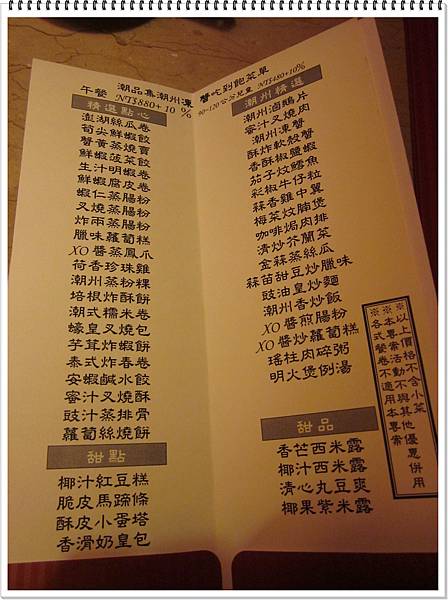 潮品集潮州凍蟹吃到飽菜單
午餐 NT$880+10%
90~120公分兒童 NT$480+10%
精選點心
澎湖絲瓜卷
筍尖鮮蝦餃
蟹黃蒸燒賣
鮮蝦菠菜餃
生汁明蝦卷
鮮蝦腐皮卷
蝦仁蒸腸粉
叉燒蒸腸粉
炸兩蒸腸粉
臘味蘿蔔糕
XO醬蒸鳳爪
荷香珍珠雞
潮州蒸粉粿
培根炸酥餅
潮式糯米卷
蠔皇叉燒包
芋茸炸蝦餅
泰式炸春卷
安蝦鹹水餃
蜜汁叉燒酥
豉汁蒸排骨
蘿蔔絲燒餅
甜點
椰汁紅豆糕
脆皮馬蹄條
酥皮小蛋塔
香滑奶皇包
潮州精選
潮州滷鵝片
蜜汁叉燒肉
潮州凍蟹
酥炸軟殼蟹
香酥椒鹽蝦
茄子炆鱈魚
彩椒牛仔粒
蒜香雞中翼
梅菜炆腩煲
咖啡焗肉排
清炒芥蘭菜
金蒜蒸絲瓜
蒜苗甜豆炒臘味
豉油皇炒麵
潮州香炒飯
XO醬煎腸粉
XO醬炒蘿蔔糕
瑤柱肉碎粥
明火煲例湯
甜品
香芒西米露
椰汁西米露
清心丸豆爽
椰果紫米露
※以上價格不含小菜
※本專案活動不與其他優惠併用
※各式餐卷不適用本專案